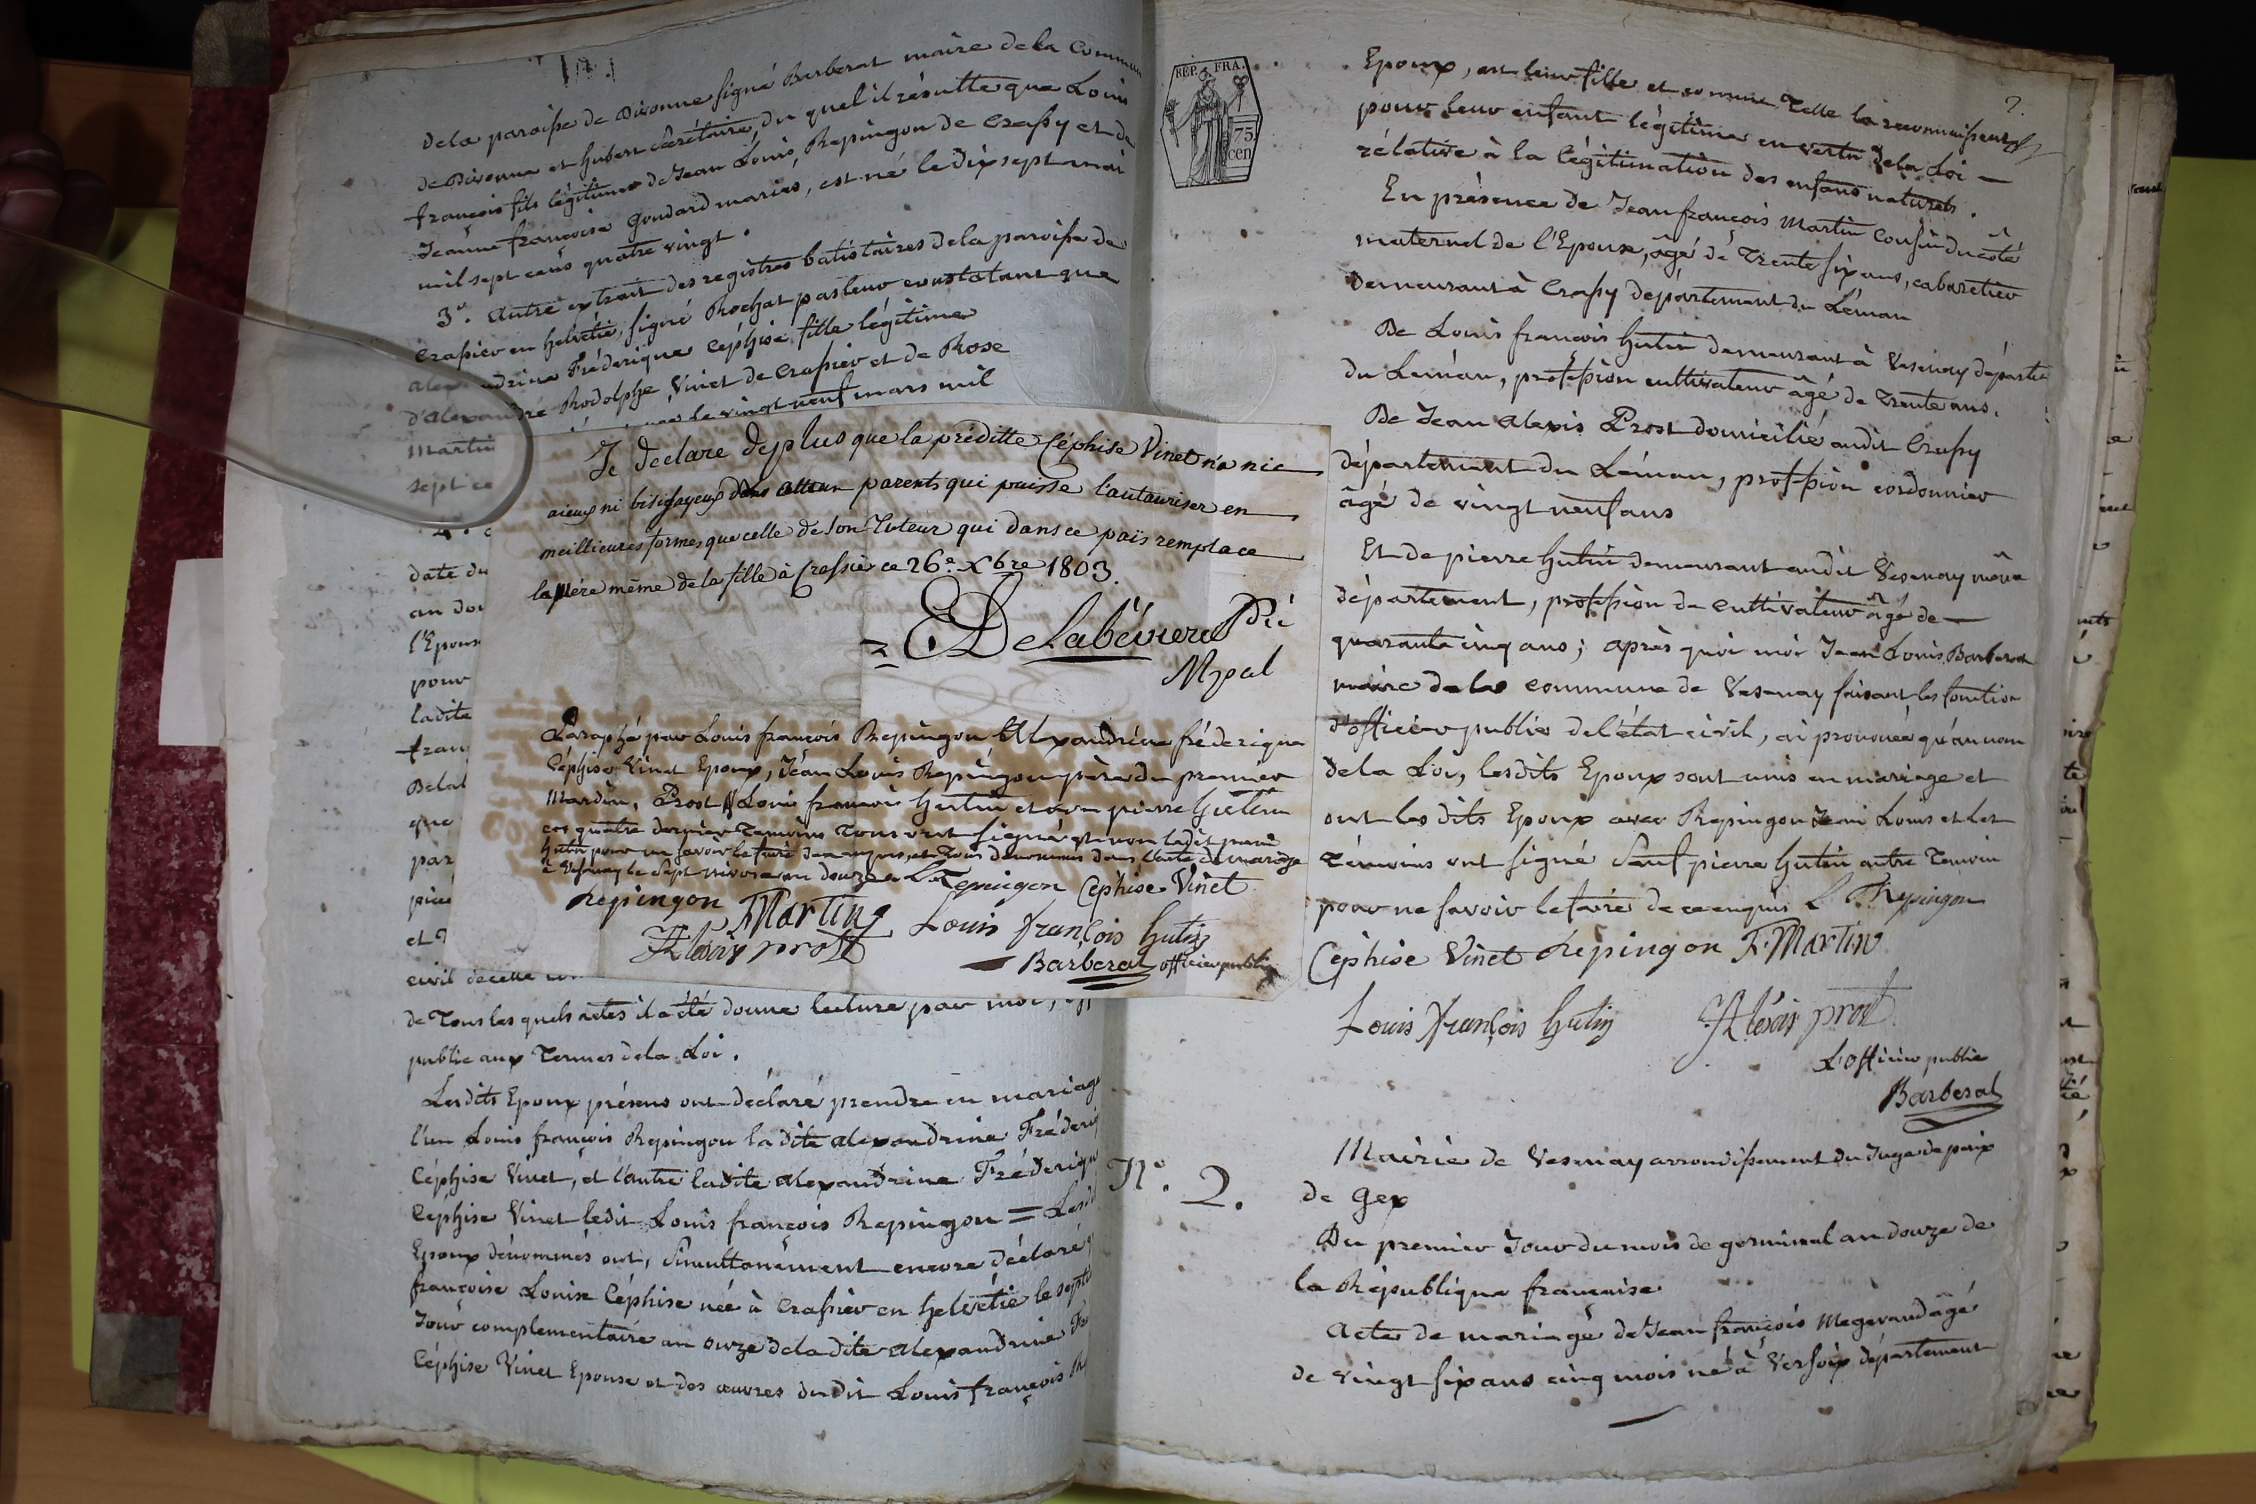 de la paroisse de Divonne signé Barberat maire de la Commun
de Divonne et hubert Secrétaire, du quel il résulte que Louis
françois fils légitime de Jean Louis Repingon de Crassy et de
Jeanne françoise Goudard mariés, est né le dix sept mai
mil sept cens quatre vingt.
3°. autre extrait des registres batistaires de la paroisse de
Crassier en helvétie, signé Rochat pasteur constatant que
Frédérique Céphise fille légitime
d'Alexandre Rodolphe Vinet de Crassier et de Rose
Martin le vingt neuf mars mil
sept ce
date du
an dou
l'Epous
pour
ladite
fran
Delab
que
par
pièc
et
civil de cette
de Tous les quels actes il a été donné lecture par moi, off
public aux Termes de la Loi.
Lesdits Epoux présens ont déclaré prendre en mariage
l'un Louis françois Repingon la dite alexandrine Fréderiq
Céphise Vinet, et l'autre ladite alexandrine Fréderique
Céphise Vinet ledit Louis françois Repingon = Lesdit
Epoux dénommés ont, simultanément encore déclaré q
françoise Louise Céphise née à Crassier en helvétie le sept
Jour complementaire an onze de ladite alexandrine Fr
Céphise Vinet Epouse et des œuvres dudit Louis françois Re
Je déclare deplus que la préditte Céphise Vinet n'a ni
aieux ni bisayeux parents qui puisse l'autauriser en
meillieures formes que celle de son Tuteur qui dans ce païs remplace
la Mére même de la fille à Crassier ce 26.e Xbre 1803.
Delabévière
Mpal
Paraphé par Louis françois Repingon Alexandrine fréderique
Céphise Vinet Epoux, Jean Louis Repingon père du premier
Martin, Prost Louis françois hutin et pierre hutin
ces quatre dernier Temoins Tous ont signé et non ledit pierre
hutin pour ne savoir le faire de ce enquis, et Tous dénommés dans l'acte de mariage
à Vesenay le Sept nivose an douze L Repingon Céphise Vinet
Repingon F Martin Louis françois hutin
Alexis prost
Barberat officier public
REP. FRA.
75
cen
2.
Epoux, est leur fille et comme Telle la reconnaissent
pour leur enfant légitime en vertu de la Loi —
rélative à la légitimation des enfans naturels.
En présence de Jean françois Martin Cousin du côté
maternel de l'Epouse, âgé de Trente six ans, cabaretier
demeurant à Crassy département du Léman
De Louis françois hutin demeurant à Vesenay départe
du Leman, profession cultivateur âgé de Trente ans.
De Jean alexis Prost domicilié audit Crassy
département du Léman, profession cordonnier
âgé de vingt neuf ans
Et de pierre hutin demeurant audit Vesenay même
département, profession de cultivateur âgé de —
quarante cinq ans; après quoi moi Jean Louis Barberat
maire de la commune de Vesenay faisant les fonction
d'officier public de l'état civil, ai prononcé qu'au nom
de la Loi, lesdits Epoux sont unis en mariage et
ont les dits Epoux avec Repingon Jean Louis et Les
Témoins ont signé Sauf pierre hutin autre Temoin
pour ne savoir le faire de ce enquis L Repingon
Céphise Vinet Repingon F. Martin
Louis françois hutin Alexis prost
L'officier public
Barberat
N°. 2.
Mairie de Vesenay arrondissement du Juge de paix
de Gex
Du premier Jour du mois de germinal an douze de
la République française
Acte de mariage de Jean françois Megevand âgé
de vingt six ans cinq mois né à Versoix département